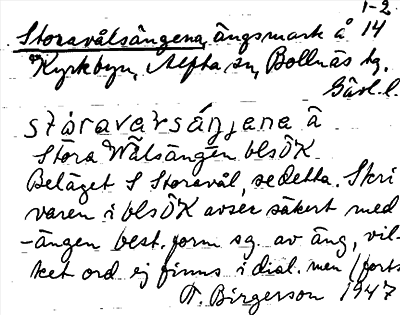 1-2
Storavålsängena, ängsmark å 14
Kyrkbyn, Alfta sn, Bollnäs tg.
Gävl. l.
stǫrava̱rsáŋjena â
Stora Wålsängen blsÖK
Beläget S Storavål, se detta. Skri
varen i blsÖK avser säkert med
-ängen best. form sg. av äng, vil-
ket ord ej finns i dial. men (forts
T. Birgerson 1947